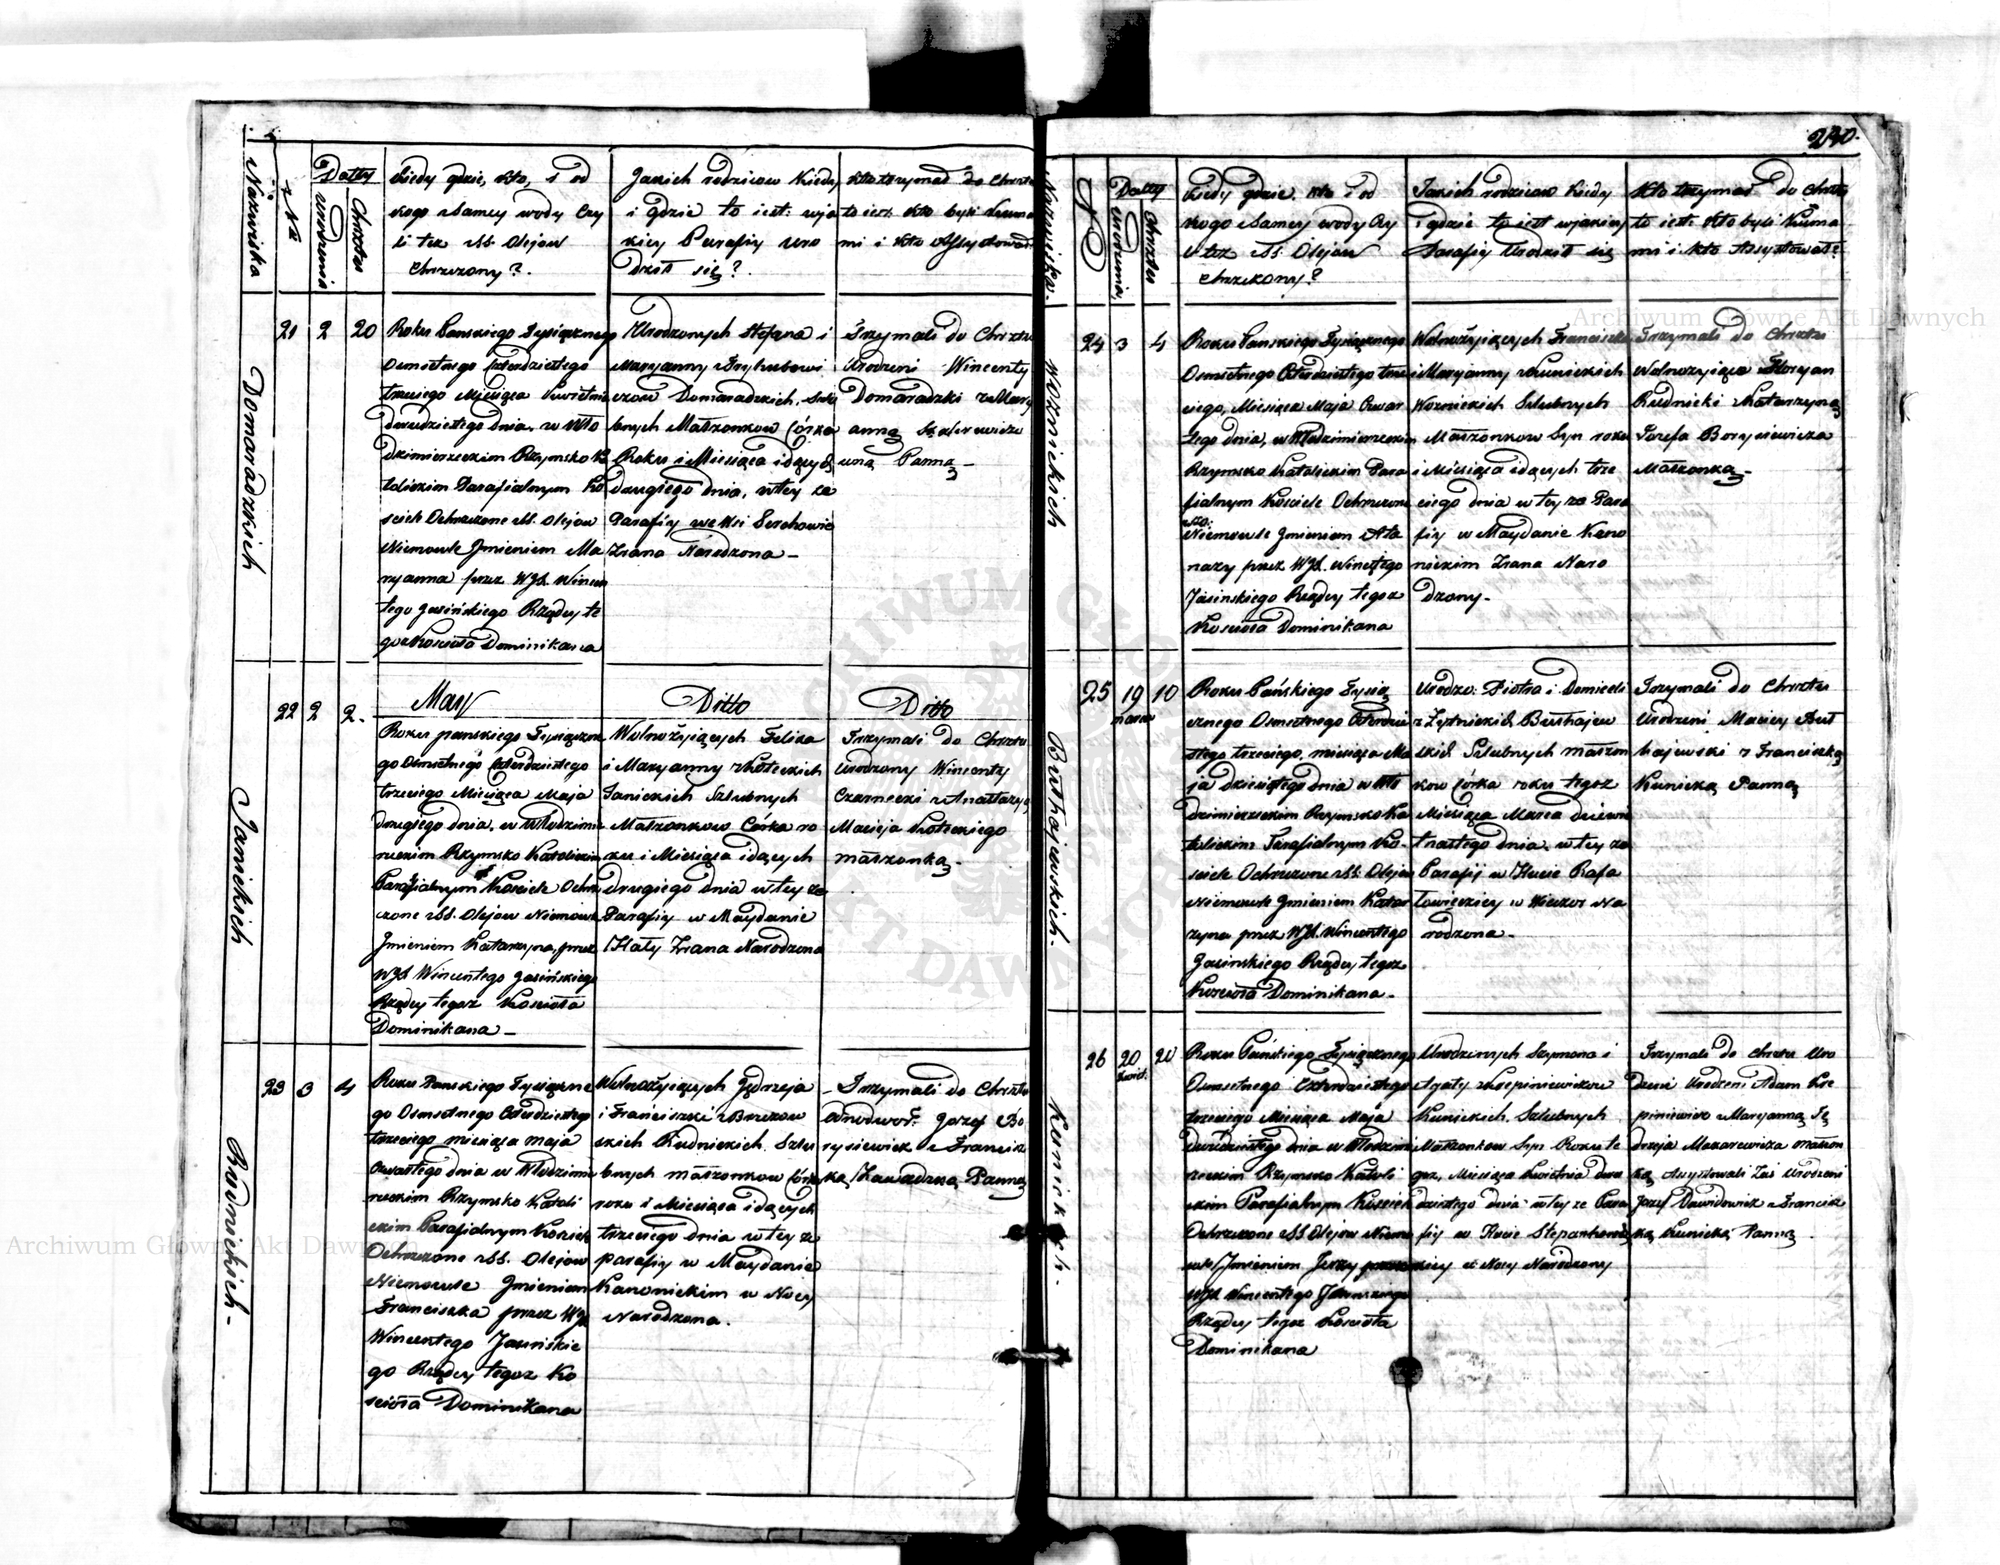 240.
Nazwiska
Datty
urodzenia
Chrztu
Kiedy gdzie, kto, i od
kogo z Samey wody Czy
li też z SS. Olejow
Chrzczony?.
Jakich rodzicow Kiedy
i gdzie to iest: w ja
kiey Parafiy uro
dził się?.
kto trzymał do Chrztu
to iest kto byli Kuma
mi i kto Assystował
Domaradzkich
21 2 20
Roku Panskiego Tysiącznego
Osmsetnego Czterdziestego
trzeciego Miesiąca Kwietnia
dwudziestego dnia, w Wło
dzimierzeckim Rzymsko Ka
tolickim Parafialnym Ko
sciele Ochrzczone z SS. Olejow
Niemowle Jmieniem Ma
ryanna przez WJX. Wincen
tego Jasińskiego Rządcy te
goż Koscioła Dominikana
Urodzonych Stefana i
Maryanny z
Domaradzkich, Szlu
bnych Małżonkow Córka
Roku i Miesiąca idących
drugiego dnia, w tey że
Parafiy we Wsi Serchowie
Zrana Narodzona –
Trzymali do Chrztu
Urodzeni Wincenty
Domaradzki z Mary
anną
Panną –
Janickich
22 2 2.
May
Ditto
Ditto
Roku panskiego Tysiączne
go Osmsetnego Czterdziestego
trzeciego Miesiąca Maja
drugiego dnia, w Włodzimie
rzeckim Rzymsko Katolickim
Parafialnym Kosciele Ochrz
czone z SS. Olejow Niemowle
Jmieniem Katarzyna, przez
WJX Wincentego Jasińskiego
Rządcy tegoż Koscioła
Dominikana –
Wolnożyiących Felixa
i Maryanny z Kołeckich
Janickich Szlubnych
Małżonkow Córka ro
ku i Miesiąca idących
drugiego dnia w tey że
Parafiy w Maydanie
Huty Zrana Narodzona
Trzymali do Chrztu
Urodzony Wincenty
Czarnecki z Anastazyą
Macieja Kołeckiego
małżonką –
Rudnickich –
23 3 4
Roku Panskiego Tysiączne
go Osmsetnego Czterdziestego
trzeciego miesiąca maja
czwartego dnia w Włodzimie
rzeckim Rzymsko Katoli
ckim Parafialnym Kosciele
Ochrzczone z SS. Olejow
Niemowle Jmieniem
Franciszka przez WJX
Wincentego Jasińskie
go Rządcy tegoż Ko
scioła Dominikana
Wolnożyiących Jędrzeja
i Franciszki z
Rudnickich Szlu
bnych małżonkow Córka
roku i Miesiąca idących
trzeciego dnia w tey że
parafiy w Maydanie
Kanonickim w Nocy
Narodzona.
– Trzymali do Chrztu
Jozef Bo
rysiewicz z Francisz
ką Zawadzką Panną
Nazwiska.
Datty
urodzenia,
Chrztu
Kiedy gdzie, kto i od
kogo z Samey wody Czy
li też z SS: Olejow
chrzczony?
Jakich rodzicow Kiedy
i gdzie to iest w jakiey
Parafiy Urodził się
Kto trzymał do Chrztu
to iest: Kto byli Kuma
mi i kto Assystował?
Woznickich
24 3 4
Roku Panskiego Tysiącznego
Osmsetnego Czterdziestego trze
ciego, Miesiąca Maja Czwar
tego dnia, w Włodzimierzeckim
Rzymsko Katolickim Para
fialnym Kosciele Ochrzczone
Niemowle Jmieniem Ata
nazy przez WJX. Wincętego
Jasinskiego Rządcy tegoż
Kosciola Dominikana
Wolnożyiących Franciszka
i Maryanny z Kunickich
Woznickich Szlubnych
Małżonkow Syn roku
i Miesiąca idących trze
ciego dnia w tey że Para
fiy w Maydanie Kano
nickim Zrana Naro
dzony –
Trzymali do Chrztu
Wolnożyiący Floryan
Rudnicki z Katarzyną
Jozefa Borysiewicza
Małżonką –
Bułhajewskich –
25 19 10
marca
Roku Pańskiego Tysią
cznego Osmsetnego Czterdzie
stego trzeciego, miesiąca Ma
ja dziesiątego dnia w Wło
dzimierzeckim Rzymsko Ka
tolickim Parafialnym Ko–
sciele Ochrzczone z SS: Olejow
Niemowle Jmieniem Katar
zyna przez WJX. Wincentego
Jasinskiego Rządcy tegoż
Kosciola Dominikana –
Urodzo: Piotra i Domiceli
z Żytnickich Bułhajew
skich Szlubnych małżon
kow Córka roku tegoż
Miesiąca Marca dziewię
tnastego dnia w tey że
Parafiy w Hucie Rafa
łowieckiey w Wieczor Na
rodzona –
Trzymali do Chrztu
Urodzeni Maciey Buł
hajewski z Franciszką
Kunicką Panną
Kunickich –
26 20 20
kwiet.
Roku Pańskiego Tysiącznego
Osmsetnego Czterdziestego
trzeciego Miesiąca Maja
dwódziestego dnia w Włodzimie
rzeckim Rzymsko Katoli
ckim Parafialnym Kosciele
Ochrzczone z SS Olejow Niemo
wle Jmieniem Jerzy przez
WJX Wincentego Jasinskiego
Rządcy tegoż Kościoła
Dominikana
Urodzonych Szymona i
Agaty z
Kunickich, Szlubnych
Małżonkow Syn Roku te
goż, Miesiąca Kwietnia dwu
dziestego dnia w tey że Para
fiy w Hucie Stepańskiey
w Nocy Narodzony
Trzymali do Chrztu Uro
dzeni Adam
z Maryanną Ję
drzeja Makarewicza małżon
ką Assystowali Zaś Urodzeni
Jozef Dawidowicz z Francisz
ką Kunicką Panną.
Archiwum Główne Akt Dawnych
Archiwum Główne Akt Dawnych